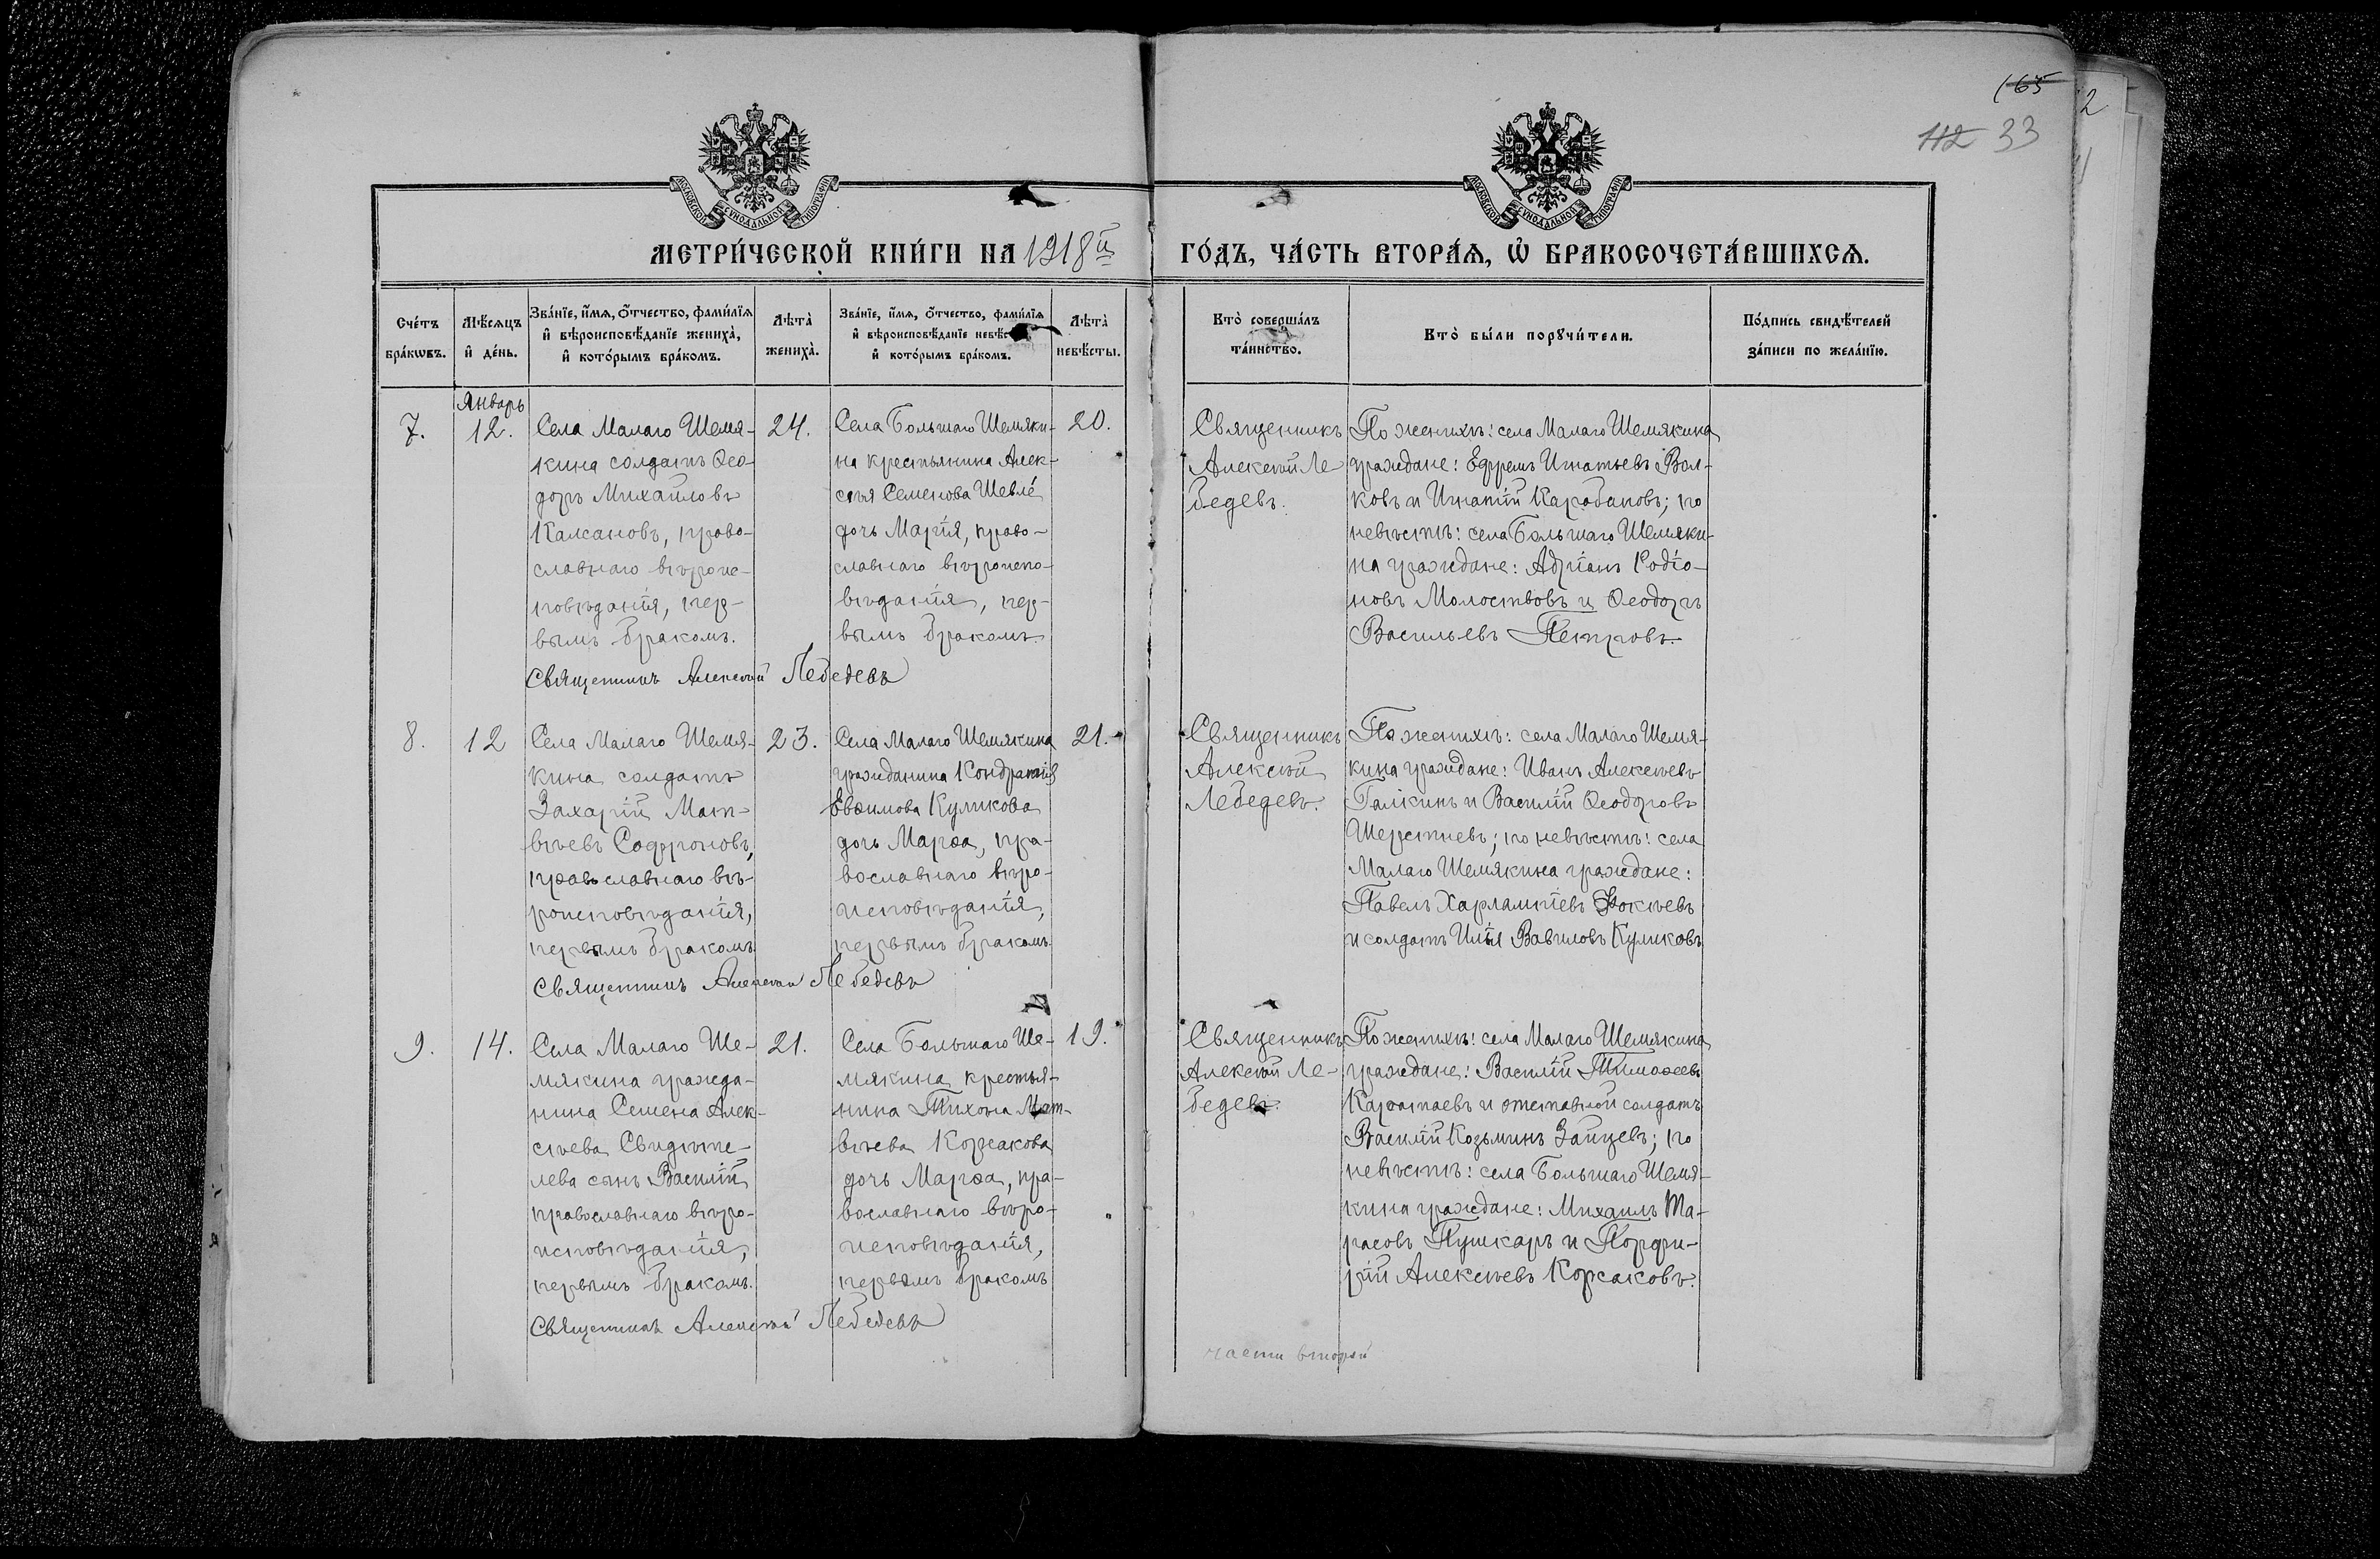 165
112 33
2
МОСКОВСКОЙ СѴНОДАЛЬНОЙ ТИПОГРАФІИ
МОСКОВСКОЙ СѴНОДАЛЬНОЙ ТИПОГРАФІИ
МЕТРИ́ЧЕСКОЙ КНИ́ГИ НА 1918й
ГО́ДЪ, ЧА́СТЬ ВТОРА́Ѧ, Ѽ БРАКОСОЧЕТА́ВШИХСѦ.
Сче́тъ
бра́кѡвъ.
Мѣ́сѧцъ
и҆ де́нь.
Зва́нїе, и҆́мѧ, о҆́тчество, фами́лїѧ
и҆ вѣроисповѣ́данїе жениха̀,
и҆ кото́рымъ бра́комъ.
Лѣта̀
жениха̀.
Зва́нїе, и҆́мѧ, о҆́тчество, фами́лїѧ
и҆ вѣроисповѣ́данїе невѣ́с
и҆ кото́рымъ бра́комъ.
Лѣта̀
невѣ́сты.
Кто̀ соверша́лъ
та́инство.
Кто̀ бы́ли порꙋчи́тели.
По́дпись свидѣ́телей
за́писи по жела́нїю.
Январь
7.
12.
Села Малаго Шемя-
кина солдатъ Ѳео-
доръ Михаиловъ
Калсановъ, право-
славнаго вѣроис-
повѣданія, пер-
вымъ бракомъ.
24.
Села Большаго Шемяки-
на крестьянина Алек-
сѣя Семенова Шевле́
дочь Марія, право-
славнаго вѣроиспо-
вѣданія, пер-
вымъ бракомъ.
20.
Священникъ Алексѣй Лебедевъ
Священникъ
Алексѣй Ле-
бедевъ.
По женихѣ: села Малаго Шемякина
граждане: Ефремъ Игнатьевъ Вол-
ковъ и Игнатій Карабановъ; по
невѣстѣ: села Большаго Шемяки-
на граждане: Адріанъ Родіо-
новъ Молоствовъ и Ѳеодоръ
Васильевъ Петровъ.
8.
12
Села Малаго Шемя-
кина солдатъ
Захарій Мат-
вѣевъ Софроновъ,
православнаго вѣ-
роисповѣданія,
первымъ бракомъ
23.
Села Малаго Шемякина
гражданина Кондратія
Евѳимова Куликова
дочь Марѳа, пра-
вославнаго вѣро-
исповѣданія,
первымъ бракомъ.
21.
Священникъ Алексѣй Лебедевъ
Священникъ
Алексѣй
Лебедевъ.
По женихѣ: села Малаго Шемя-
кина граждане: Иванъ Алексѣевъ
Галкинъ и Василій Ѳеодоровъ
Шерстневъ; по невѣстѣ: села
Малаго Шемякина граждане:
Павелъ Харлампіевъ Фокѣевъ
и солдатъ Илья Вавиловъ Куликовъ
9.
14.
Села Малаго Ше-
мякина гражда-
нина Семена Алек-
сѣева Свидѣте-
лева сынъ Василій
православнаго вѣро-
исповѣданія,
первымъ бракомъ.
21.
Села Большаго Ше-
мякина крестья-
нина Тихона Мат-
вѣева Корсакова
дочь Марѳа, пра-
вославнаго вѣро-
исповѣданія,
первымъ бракомъ
19.
Священникъ Алексѣй Лебедевъ
Священникъ
Алексѣй Ле-
бедевъ.
По женихѣ: села Малаго Шемякина
граждане: Василій Тимоѳеевъ
Каратаевъ и отставной солдатъ
Василій Козьминъ Зайцевъ; по
невѣстѣ: села Большаго Шемя-
кина граждане: Михаилъ Та-
расовъ Пушкаръ и Порфи-
рій Алексѣевъ Корсаковъ.
части второй